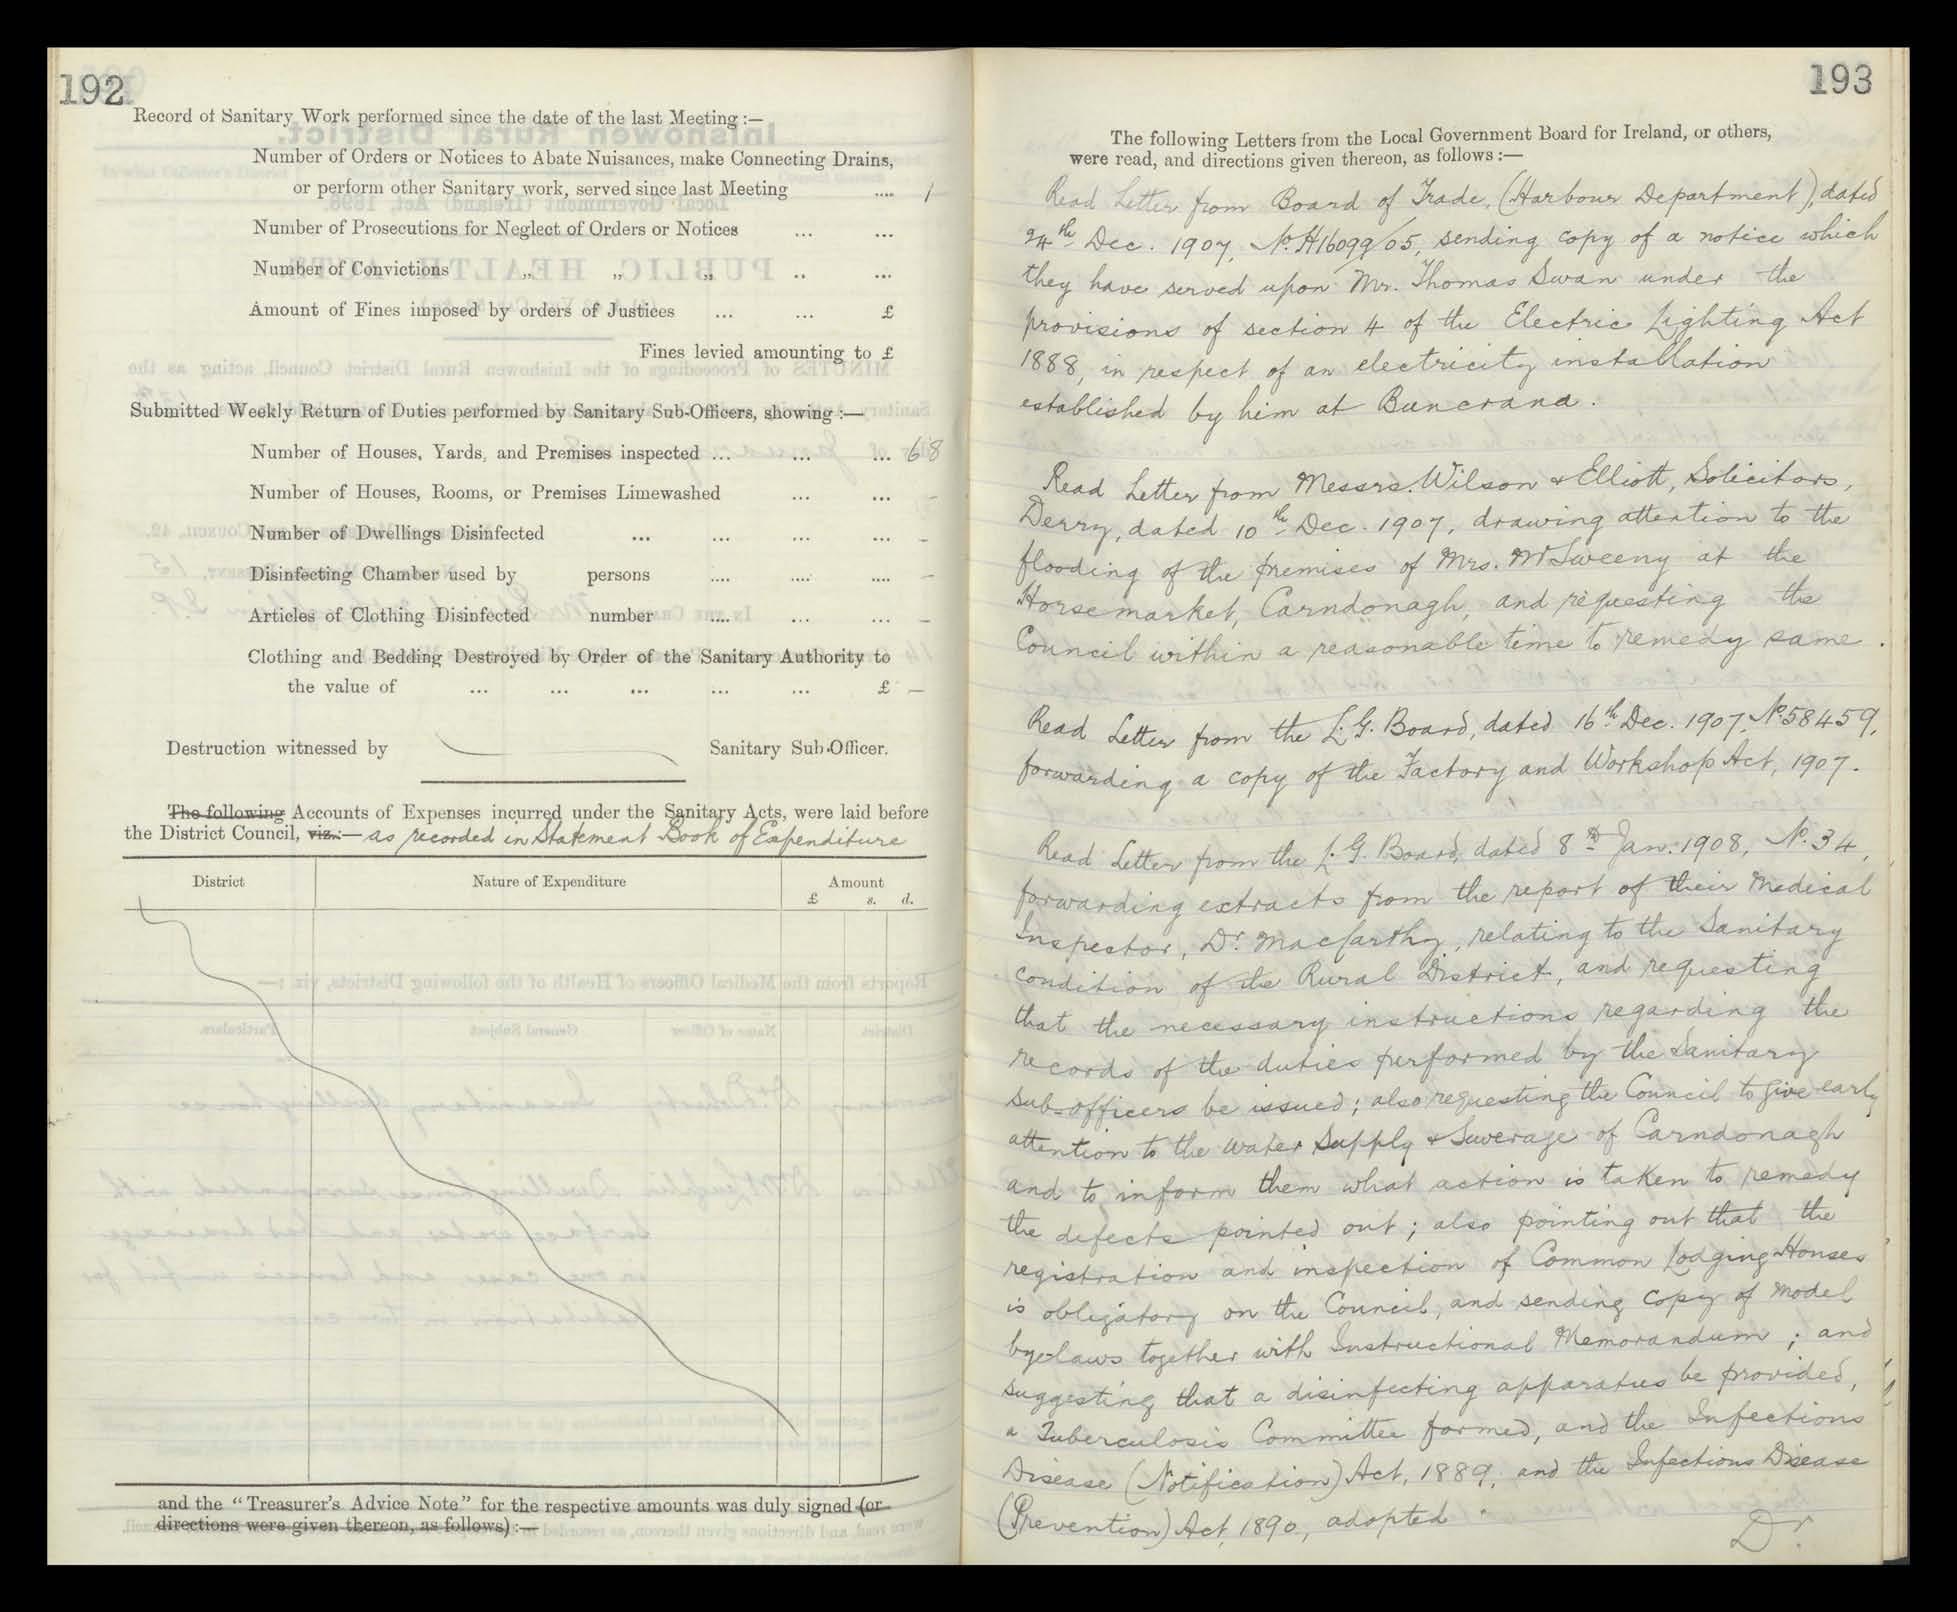 192
Record of Sanitary Work performed since the date of the last Meeting :—
Number of Orders or Notices to Abate Nuisances, make Connecting Drains,
or perform other Sanitary work, served since last Meeting .... 1
Number of Prosecutions for Neglect of Orders or Notices ... ...
Number of Convictions „ „ „ .. ...
Amount of Fines imposed by orders of Justices ... ... £
Fines levied amounting to £
Submitted Weekly Return of Duties performed by Sanitary Sub-Officers, showing :—
Number of Houses, Yards, and Premises inspected ... ... ... 68
Number of Houses, Rooms, or Premises Limewashed ... ... –
Number of Dwellings Disinfected ... ... ... ... –
Disinfecting Chamber used by persons .... .... .... –
Articles of Clothing Disinfected number .... ... ... –
Clothing and Bedding Destroyed by Order of the Sanitary Authority to
the value of ... ... ... ... ... £ –
Destruction witnessed by Sanitary Sub-Officer.
The following Accounts of Expenses incurred under the Sanitary Acts, were laid before
the District Council, viz.:— as recorded in Statement Book of Expenditure
District Nature of Expenditure Amount
£ s. d.
and the "Treasurer's Advice Note" for the respective amounts was duly signed (or
directions were given thereon, as follows) :—
193
The following Letters from the Local Government Board for Ireland, or others,
were read, and directions given thereon, as follows :—
Read Letter from Board of Trade, (Harbour Department), dated
24th Dec. 1907, No. H16099/05, sending copy of a notice which
they have served upon Mr. Thomas Swan under the
provisions of section 4 of the Electric Lighting Act
1888, in respect of an electricity installation
established by him at Buncrana.
Read Letter from Messrs. Wilson & Elliott, Solicitors,
Derry, dated 10th Dec. 1907, drawing attention to the
flooding of the premises of Mrs. McSweeny at the
Horsemarket, Carndonagh, and requesting the
Council within a reasonable time to remedy same.
Read Letter from the L. G. Board, dated 16th Dec. 1907, No. 58459,
forwarding a copy of the Factory and Workshop Act, 1907.
Read Letter from the L. G. Board, dated 8th Jan. 1908, No. 34,
forwarding extracts from the report of their Medical
Inspector, Dr. MacCarthy, relating to the Sanitary
condition of the Rural District, and requesting
that the necessary instructions regarding the
records of the duties performed by the Sanitary
Sub-officers be issued; also requesting the Council to give early
attention to the water Supply & Sewerage of Carndonagh
and to inform them what action is taken to remedy
the defects pointed out; also pointing out that the
registration and inspection of Common Lodging Houses
is obligatory on the Council, and sending copy of Model
bye-laws together with Instructional Memorandum; and
suggesting that a disinfecting apparatus be provided,
a Tuberculosis Committee formed, and the Infectious
Disease (Notification) Act, 1889, and the Infectious Disease
(Prevention) Act, 1890, adopted.
Dr.